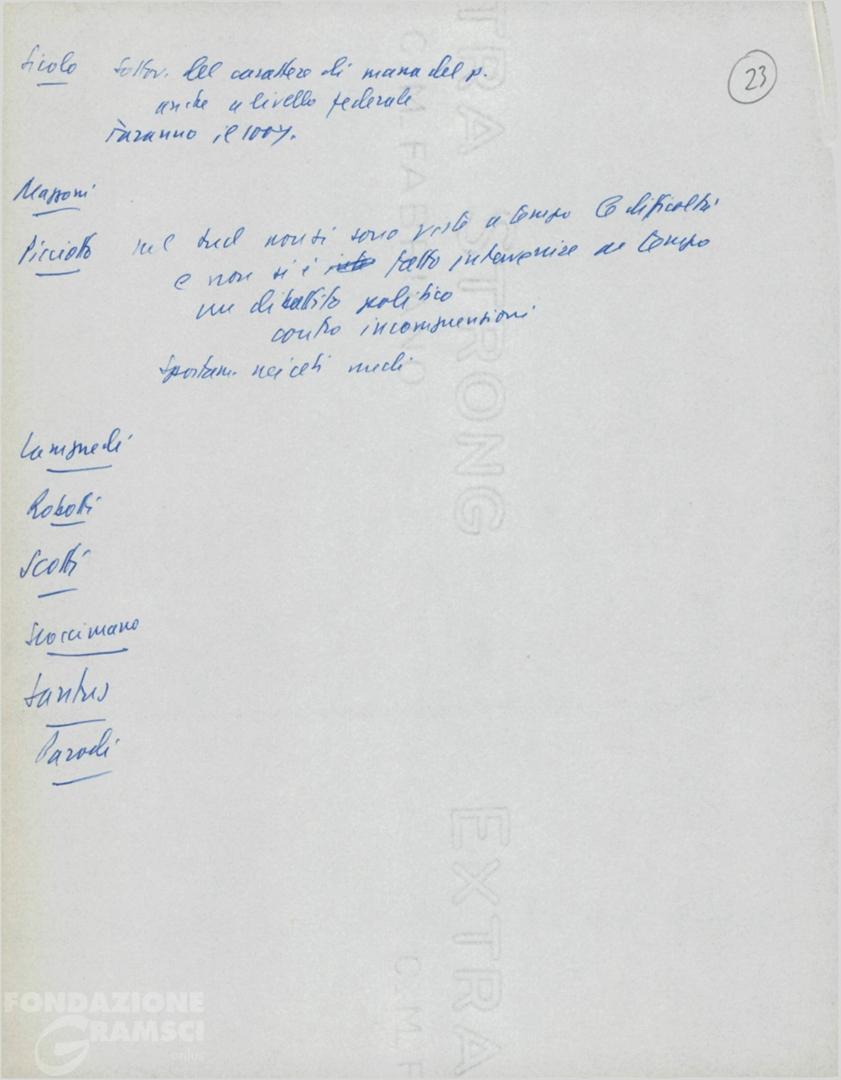 23
Sicolo Sottov. del carattere di massa del p.
anche a livello federale
Faranno il 100%.
Massoni
Picciotto nel Sud non si sono viste a tempo le difficoltà
e non si è fatto intervenire a tempo
un dibattito politico
contro incomprensioni
Spostam. nei ceti medi
Lampredi
Robotti
Scotti
Scoccimarro
Santus
Parodi
EXTRA STRONG
C.M. FABRIANO
EXTRA
C.M.F
FONDAZIONE
GRAMSCI
onlus